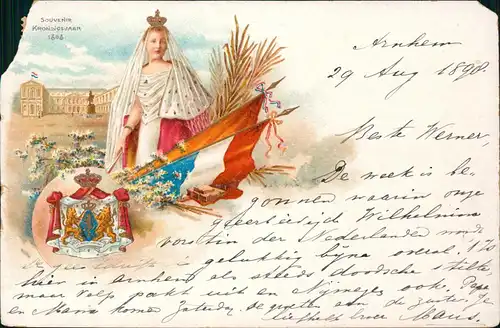 SOUVENIR
KRONINGSJAAR
1898
Arnhem
29 Aug 1898.
Beste Werner,
De week is be-
gonnen waarin onze
geëerbiedigde Wilhelmina
vorstin der Nederlanden wordt
gelukkig bijna overal.
hier in Arnhem als steeds doodsche stilte,
maar Velp pakt uit en Nijmegen ook. Papa
en Mama komen Zaterdag. De groeten aan de zusters. Je
liefheb Marie.